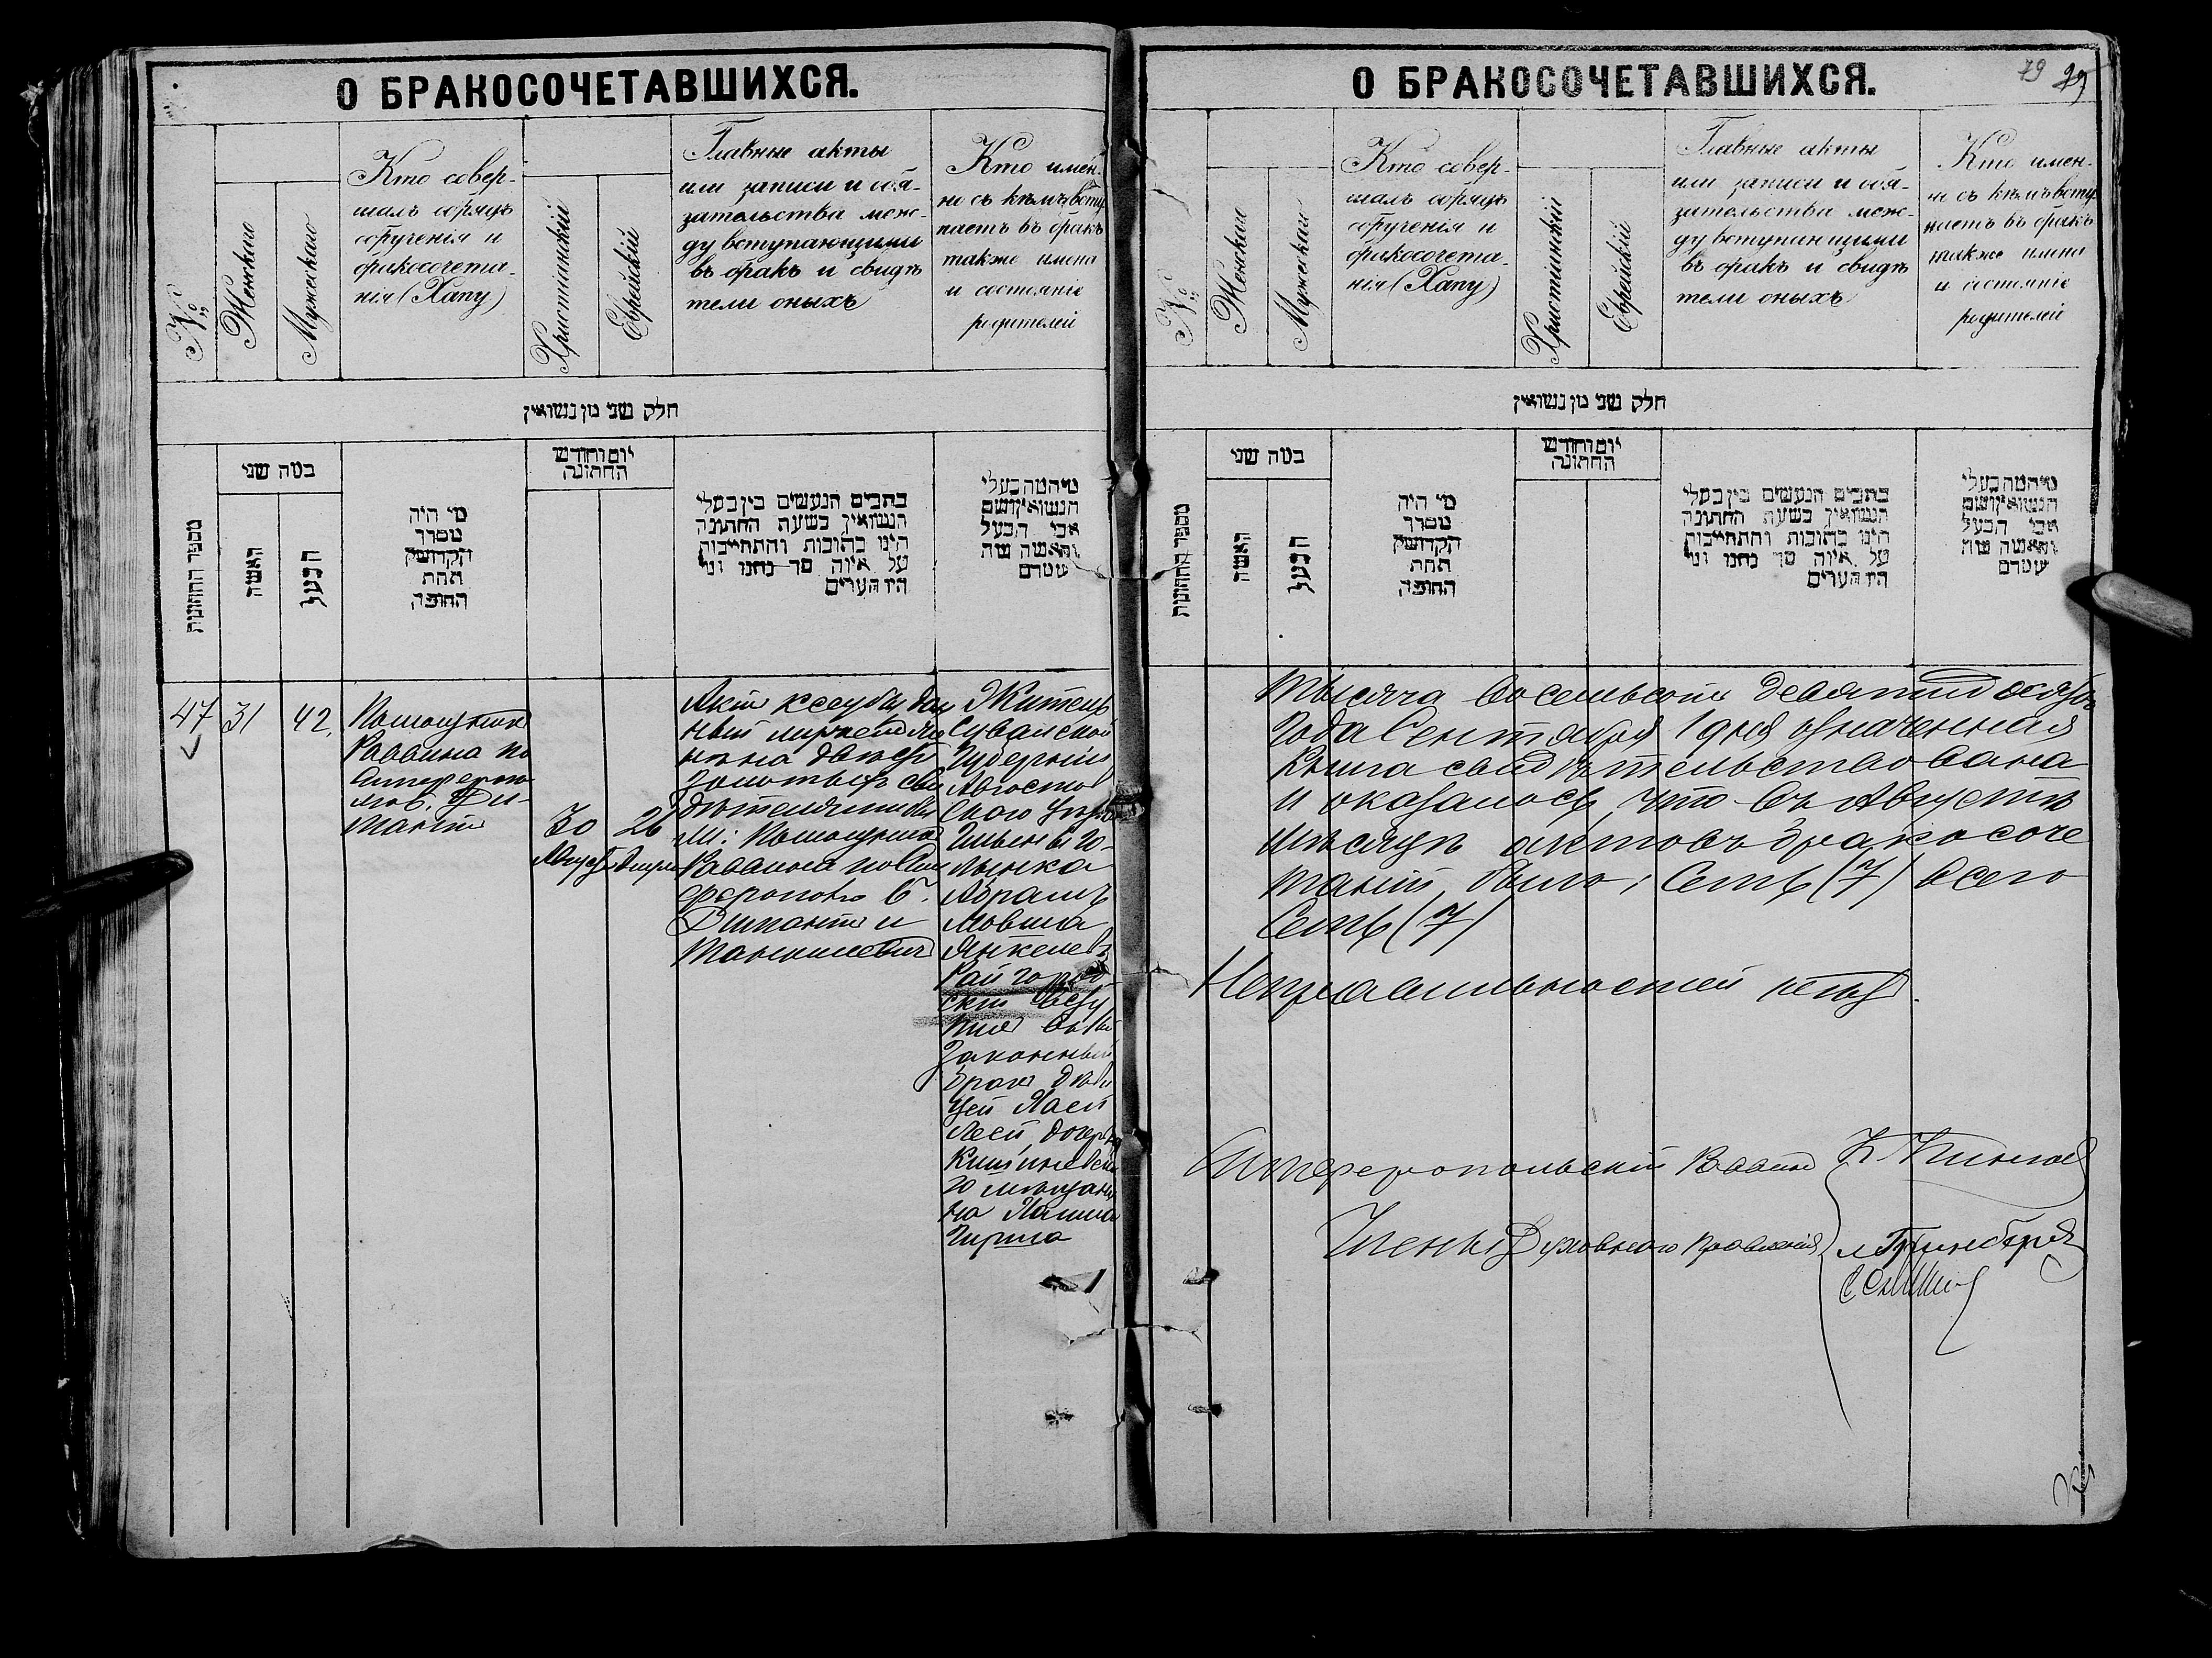 О БРАКОСОЧЕТАВШИХСЯ.
№
Женскаго
Мужескаго
Кто совер-
шалъ обрядъ
обрученія и
бракосочета-
нія (Хапу)
Христіанскій
Еврейскій
Главные акты
или записи и обя-
зательства меж-
ду вступающими
въ бракъ и свидѣ
тели оныхъ
Кто имен-
но съ кѣмъ всту
паетъ въ бракъ
также имена
и состояніе
родителей
חלק שני מן נשואין
מספר החתונות
כמה שני
האשה
הבעל
מי היה
מסדר
הקדושין
תחת
החופה
יום וחודש
החתונה
כתבים הנעשים בין בעלי
הנשואין בשעת החתונה
היינו כתובות והתחייבות
על איזה סך נתנו ומי
היו העדים
מי המה בעלי
הנשואין ושם
אבי הבעל
והאשה ומה
שמם
47
31
42.
Помощник
Раввина по
Симферопо-
лю
30
Август
26
Акт ксубы дан
ный
золотых сви
дѣтелями были
Ш: Помощник
Раввина по Сим
ферополю Б.
и
Житель
Сувалской
Губерніи
Августов
скаго уѣзда
Абрамъ
Мовша
Янкелев
Райгород
скій всту
пил въ
законный
брак с дѣви
цей Хаей
Леей дочерью
Кишиневска
го мѣщани
на Хаима
Гирша
О БРАКОСОЧЕТАВШИХСЯ.
79
№
Женскаго
Мужескаго
Кто совер-
шалъ обрядъ
обрученія и
бракосочета-
нія (Хапу)
Христіанскій
Еврейскій
Главные акты
или записи и обя-
зательства меж-
ду вступающими
въ бракъ и свидѣ
тели оныхъ
Кто имен-
но съ кѣмъ всту
паетъ въ бракъ
также имена
и состояніе
родителей
חלק שני מן נשואין
מספר החתונות
כמה שני
האשה
הבעל
מי היה
מסדר
הקדושין
תחת
החופה
יום וחודש
החתונה
כתבים הנעשים בין בעלי
הנשואין בשעת החתונה
היינו כתובות והתחייבות
על איזה סך נתנו ומי
היו העדים
מי המה בעלי
הנשואין ושם
אבי הבעל
והאשה ומה
שמם
Тысяча восемьсот девятидесятого
Года Сентября 1 дня означенная
Книга свидѣтельствована
и оказалось, что въ Августѣ
мѣсяцѣ актовъ бракосоче
таній было: Семь (7) всего
Семь (7)
Неправильностей нетъ.
Симферопольскій Раввин
Члены Духовнаго Правленія
Гринберг